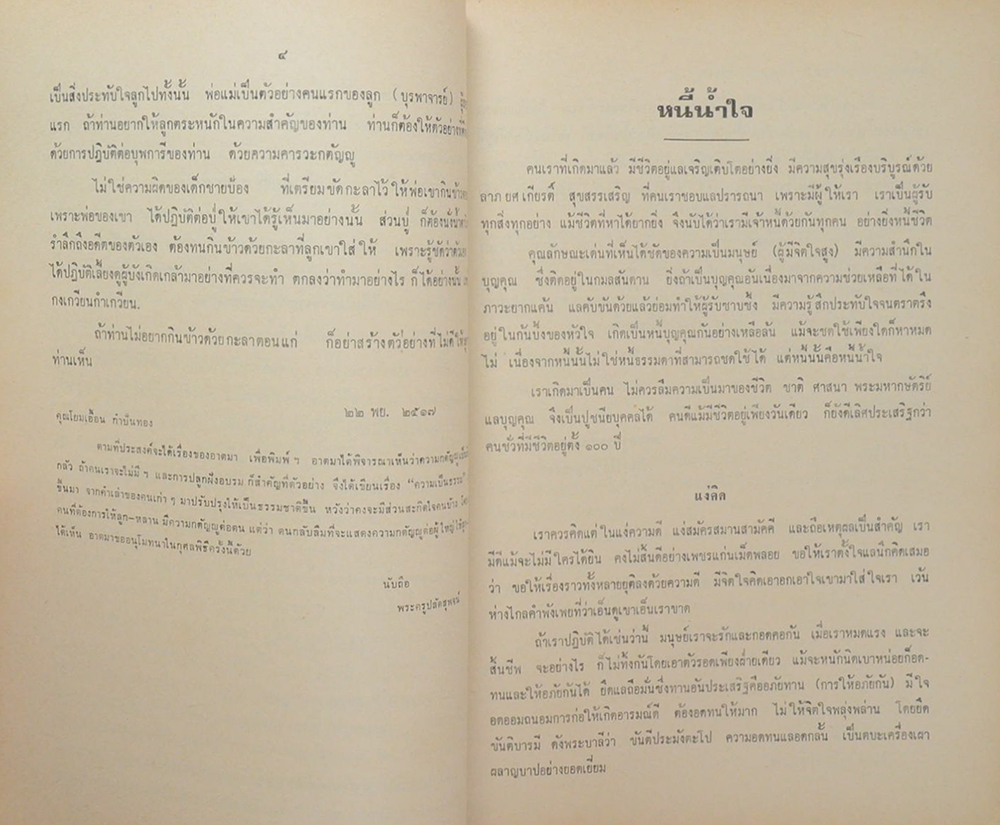 ๔
เป็นสิ่งประทับใจลูกไปทั้งนั้น พ่อแม่เป็นตัวอย่างคนแรกของลูก (บุรพาจารย์)
แรก ถ้าท่านอยากให้ลูกตระหนักในความสำคัญของท่าน ท่านก็ต้องให้ตัวอย่าง
ด้วยการปฏิบัติต่อบุพการีของท่าน ด้วยความคารวะกตัญญู
ไม่ใช่ความผิดของเด็กชายบ๊อง ที่เตรียมขัดกะลาไว้ให้พ่อเขากินข้าว
เพราะพ่อของเขา ได้ปฏิบัติต่อปู่ให้เขาได้รู้เห็นมาอย่างนั้น ส่วนปู่ ก็ต้อง
รำลึกถึงอดีตของตัวเอง ต้องทนกินข้าวด้วยกะลาที่ลูกเขาใส่ให้ เพราะรู้ชัดว่า
ได้ปฏิบัติเลี้ยงดูผู้บังเกิดเกล้ามาอย่างที่ควรจะทำ ตกลงว่าทำมาอย่างไร ก็ได้อย่างนั้น
กงเกวียนกำเกวียน.
ถ้าท่านไม่อยากกินข้าวด้วยกะลาตอนแก่ ก็อย่าสร้างตัวอย่างที่ไม่ดีให้
ท่านเห็น
๒๒ พย. ๒๕๑๗
คุณโยมเอื้อน กำปั่นทอง
ตามที่ประสงค์จะได้เรื่องของอาตมา เพื่อพิมพ์ ฯ อาตมาได้พิจารณาเห็นว่าความกตัญญู
กลัว ถ้าคนเราจะไม่มี ฯ และการปลูกฝังอบรม ก็สำคัญที่ตัวอย่าง จึงได้เขียนเรื่อง “ความเป็นธรรม”
ขึ้นมา จากคำเล่าของคนเก่า ๆ มาปรับปรุงให้เป็นธรรมชาติขึ้น หวังว่าคงจะมีส่วนสะกิดใจคนบ้าง
คนที่ต้องการให้ลูก–หลาน มีความกตัญญูต่อตน แต่ว่า ตนกลับลืมที่จะแสดงความกตัญญูต่อผู้ใหญ่
ได้เห็น อาตมาขออนุโมทนาในกุศลพิธีครั้งนี้ด้วย
นับถือ
พระครูปลัดสุพจน์
หนี้น้ำใจ
คนเราที่เกิดมาแล้ว มีชีวิตอยู่แลเจริญเติบโตอย่างยิ่ง มีความสุขรุ่งเรืองบริบูรณ์ด้วย
ลาภ ยศ เกียรติ์ สุขสรรเสริญ ที่คนเราชอบแลปรารถนา เพราะมีผู้ให้เรา เราเป็นผู้รับ
ทุกสิ่งทุกอย่าง แม้ชีวิตที่หาได้ยากยิ่ง จึงนับได้ว่าเรามีเจ้าหนี้ด้วยกันทุกคน อย่างยิ่งหนี้ชีวิต
คุณลักษณะเด่นที่เห็นได้ชัดของความเป็นมนุษย์ (ผู้มีจิตใจสูง) มีความสำนึกใน
บุญคุณ ซึ่งติดอยู่ในกมลสันดาน ยิ่งถ้าเป็นบุญคุณอันเนื่องมาจากความช่วยเหลือที่ได้ใน
ภาวะยากแค้น แลคับขันด้วยแล้วย่อมทำให้ผู้รับซาบซึ้ง มีความรู้สึกประทับใจจนตราตรึง
อยู่ในก้นบึ้งของหัวใจ เกิดเป็นหนี้บุญคุณกันอย่างเหลือล้น แม้จะชดใช้เพียงใดก็หาหมด
ไม่ เนื่องจากหนี้นั้นไม่ใช่หนี้ธรรมดาที่สามารถชดใช้ได้ แต่หนี้นั้นคือหนี้น้ำใจ
เราเกิดมาเป็นคน ไม่ควรลืมความเป็นมาของชีวิต ชาติ ศาสนา พระมหากษัตริย์
แลบุญคุณ จึงเป็นปูชนียบุคคลได้ คนดีแม้มีชีวิตอยู่เพียงวันเดียว ก็ยังดีเลิศประเสริฐกว่า
คนชั่วที่มีชีวิตอยู่ตั้ง ๑๐๐ ปี
แง่คิด
เราควรคิดแต่ในแง่ความดี แง่สมัครสมานสามัคคี และถือเหตุผลเป็นสำคัญ เรา
มีดีแม้จะไม่มีใครได้ยิน คงไม่สิ้นดีอย่างเพชรแก่นเม็ดพลอย ขอให้เราตั้งใจแลนึกคิดเสมอ
ว่า ขอให้เรื่องราวทั้งหลายยุติลงด้วยความดี มีจิตใจคิดเอาอกเอาใจเขามาใส่ใจเรา เว้น
ห่างไกลคำพังเพยที่ว่าเอ็นดูเขาเอ็นเราขาด
ถ้าเราปฏิบัติได้เช่นว่านี้ มนุษย์เราจะรักและกอดคอกัน เมื่อเราหมดแรง และจะ
สิ้นชีพ จะอย่างไร ก็ไม่ทิ้งกันโดยเอาตัวรอดเพียงฝ่ายเดียว แม้จะหนักนิดเบาหน่อยก็อด-
ทนและให้อภัยกันได้ ยึดแลถือมั่นซึ่งทานอันประเสริฐคืออภัยทาน (การให้อภัยกัน) มีใจ
อดออมถนอมการก่อให้เกิดอารมณ์ดี ต้องอดทนให้มาก ไม่ให้จิตใจพลุ่งพล่าน โดยยึด
ขันติบารมี ดังพระบาลีว่า ขันตีประมังตะโป ความอดทนแลอดกลั้น เป็นตบะเครื่องเผา
ผลาญบาปอย่างยอดเยี่ยม